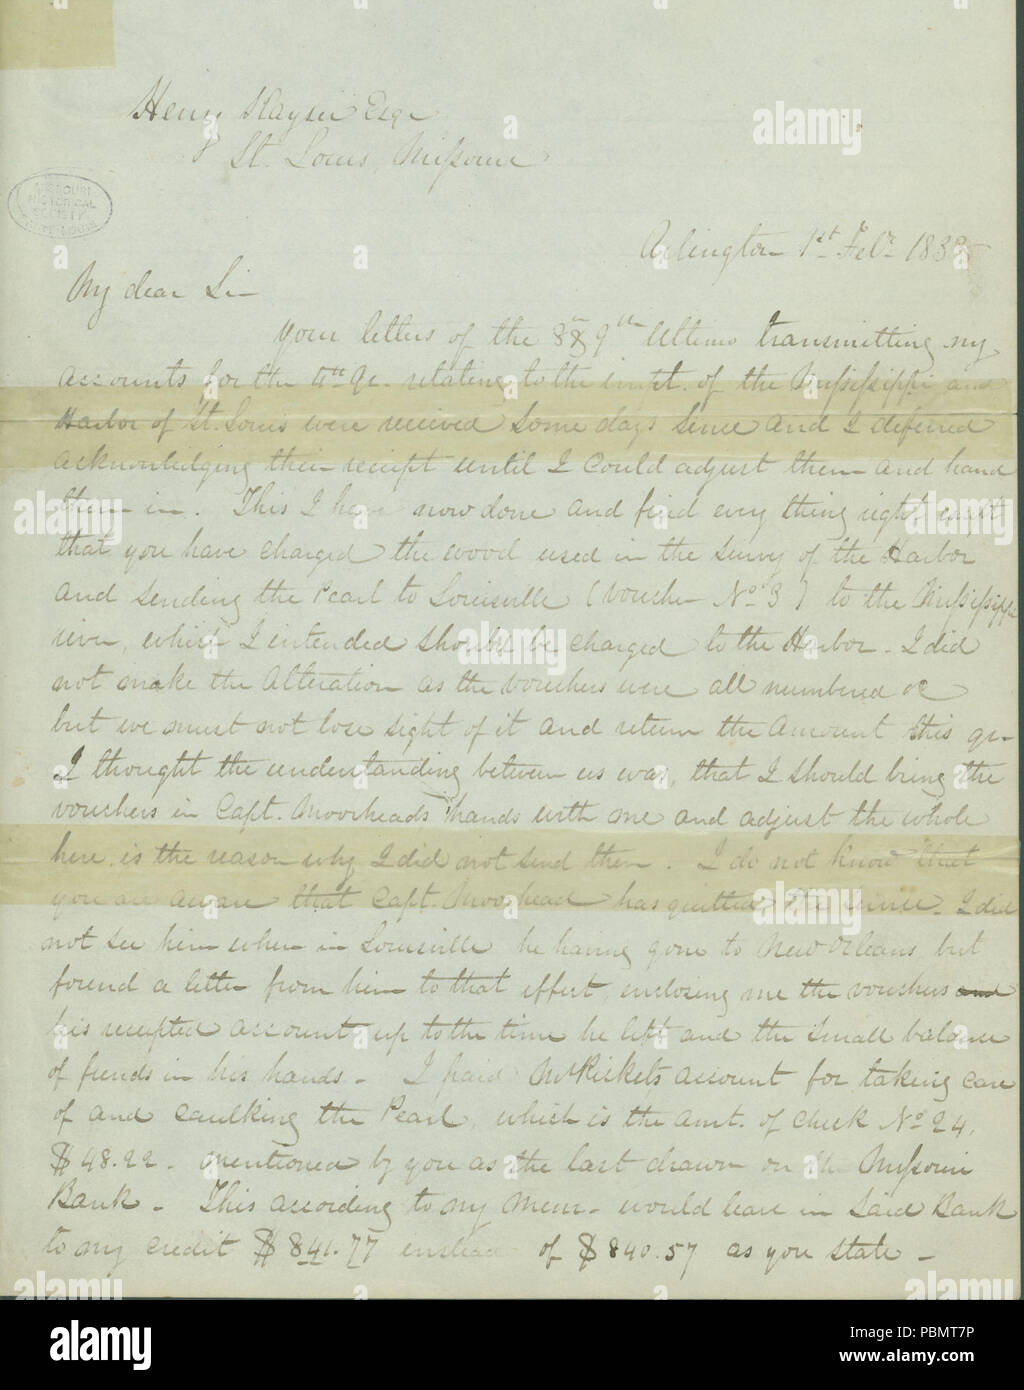 Henry Kayser Esqr
St. Louis, Missouri
MISSOURI
HISTORICAL
SOCIETY
SAINT LOUIS
Arlington 1st Feby. 183
My dear Sir
Your letters of the 8th & 9th Ultimo transmitting my
accounts for the 4th Qr. relating to the impt. of the Mississippi and
Harbor of St. Louis were received some days since and I deferred
acknowledging their receipt until I could adjust them and hand
them in. This I have now done and find every thing right except
that you have charged the wood used in the survey of the Harbor
and sending the Pearl to Louisville (voucher No. 3) to the Mississippi
river, which I intended should be charged to the Harbor. I did
not make the alteration as the vouchers were all numbered &c
but we must not lose sight of it and return the amount this qr.
I thought the understanding between us was, that I should bring the
vouchers in Capt. Moorheads hands with me and adjust the whole
here, is the reason why I did not send them. I do not know that
you are aware that Capt. Moorhead has quitted the service. I did
not see him when in Louisville he having gone to New Orleans, but
found a letter from him to that effect, enclosing me the vouchers and
his receipted account up to the time he left and the small balance
of funds in his hands. I paid McRickets account for taking care
of and caulking the Pearl, which is the amt. of check No 24,
$48.22. mentioned by you as the last drawn on the Missouri
Bank. This according to my Mem. would leave in said Bank
to my credit $841.77 instead of $840.57 as you state.
alamy
a
alamy
Image ID: PBMT7P
www.alamy.com